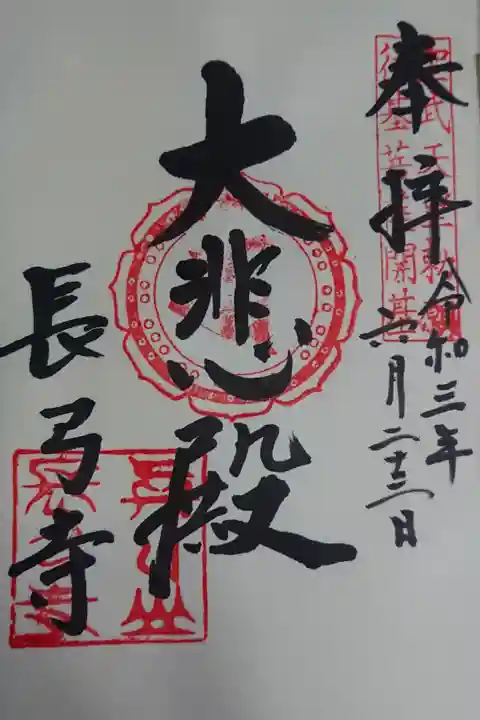 奉拝
令和三年
六月二十三日
聖武天皇勅願
行基菩薩開基
大悲殿
長弓寺
真弓山
長弓寺